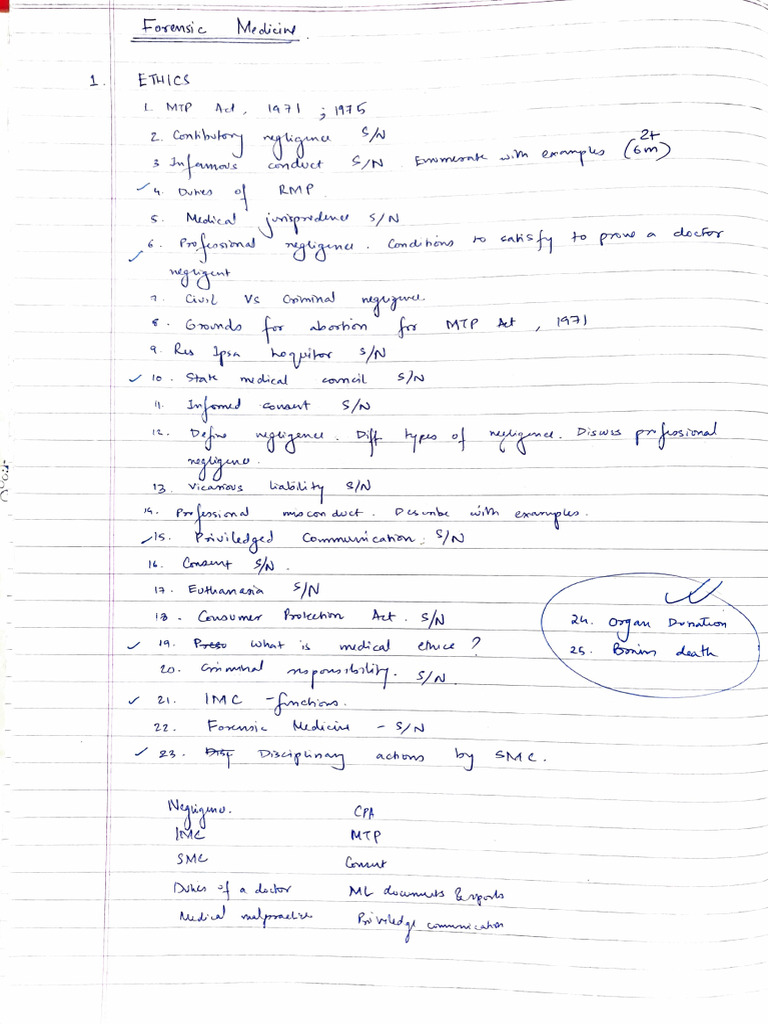 Forensic Medicine.
1. ETHICS
1. MTP Act, 1971 ; 1975
2. Contibutory negligence S/N
3 Infamous conduct S/N. Enumerate with examples (2+6m)
4. Duties of RMP.
5. Medical jurisprudence S/N
6. Professional negligence. Conditions to satisfy to prove a doctor
negligent
7. Civil Vs Criminal negligence.
8. Grounds for abortion for MTP Act, 1971
9. Res Ipsa Loquitor S/N
10. State medical council S/N
11. Informed consent S/N
12. Define negligence. Diff types of negligence. Discuss professional
negligence.
13. Vicarious liability S/N
14. Professional misconduct. Describe with examples.
15. Priviledged Communication. S/N
16. Consent S/N.
17. Euthanasia S/N
18. Consumer Protection Act. S/N
24. Organ Donation
19. What is medical ethics ?
25. Brain death
20. Criminal responsibility. S/N.
21. IMC - functions.
22. Forensic Medicine - S/N
23. Disciplinary actions by SMC.
Negligence. CPA
IMC MTP
SMC Consent
Duties of a doctor ML documents & reports
Medical malpractice Priviledge communication